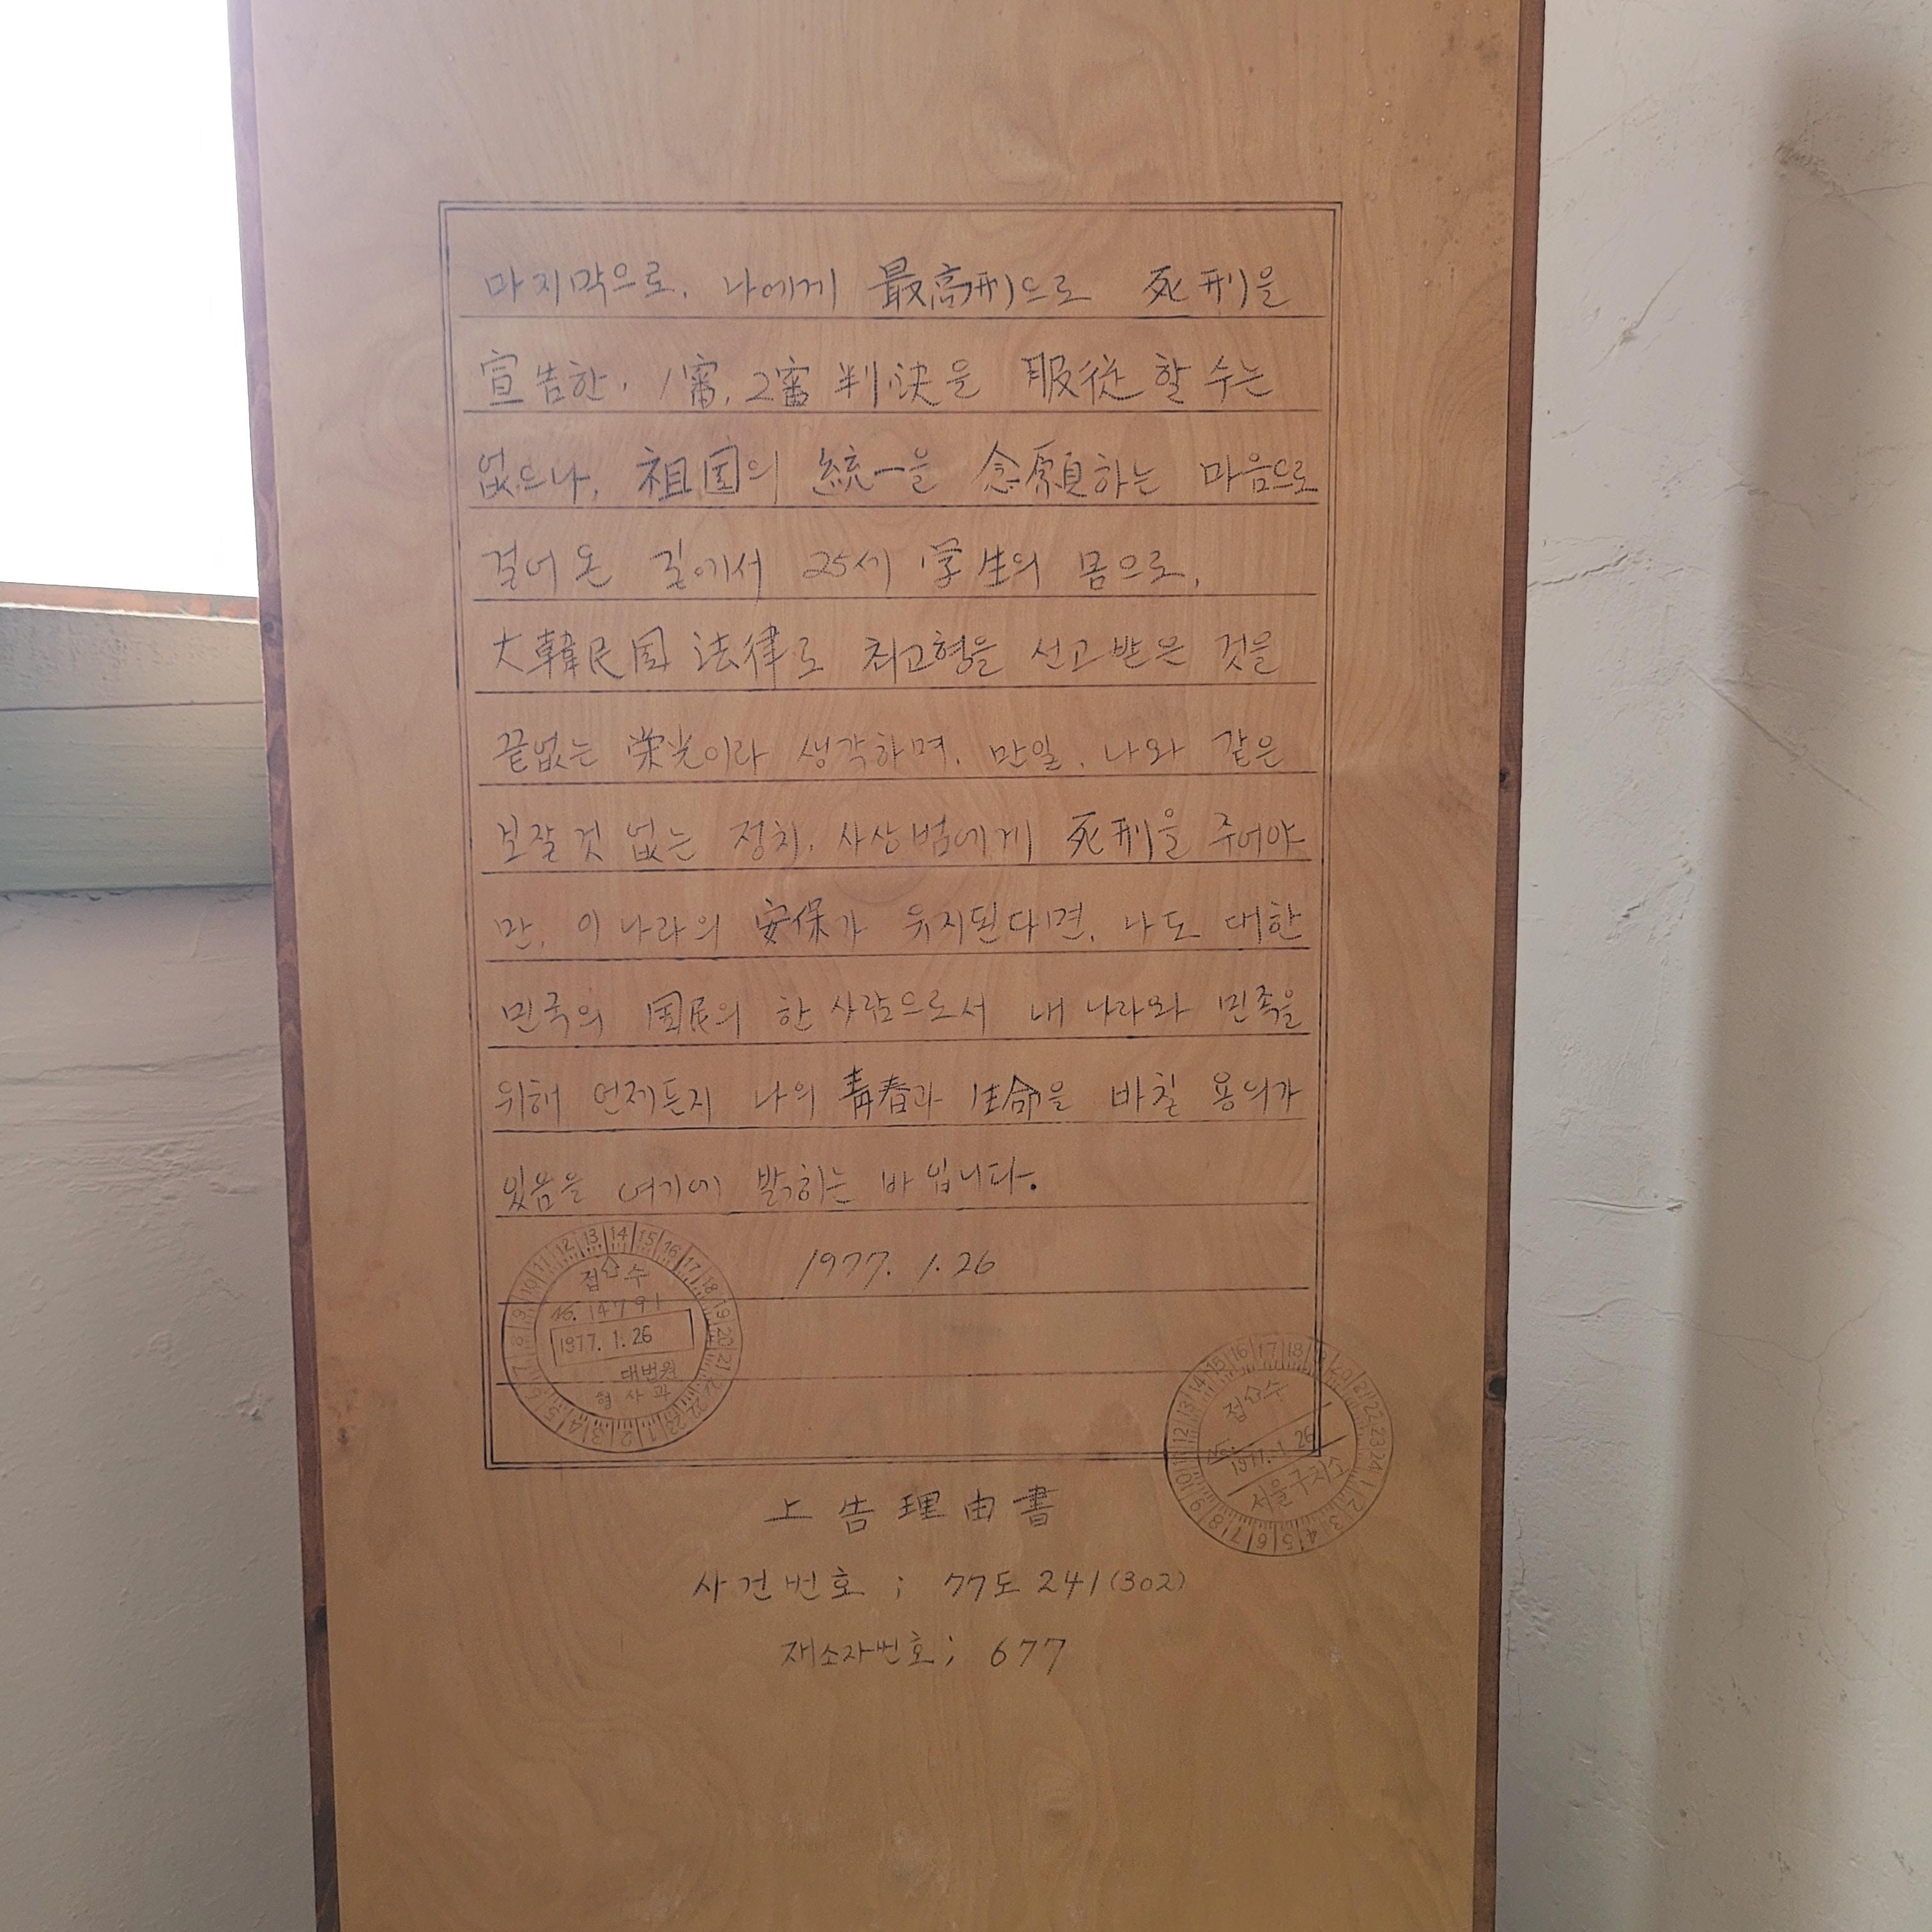 마지막으로, 나에게 最高刑으로 死刑을
宣告한, 1審, 2審 判決을 服従할 수는
없으나, 祖国의 統一을 念願하는 마음으로
걸어 온 길에서 25세 学生의 몸으로,
大韓民国 法律로 최고형을 선고 받은 것을
끝없는 栄光이라 생각하며, 만일, 나와 같은
보잘 것 없는 정치, 사상범에게 死刑을 주어야
만, 이 나라의 安保가 유지된다면, 나도 대한
민국의 国民의 한 사람으로서 내 나라와 민족을
위해 언제든지 나의 青春과 生命을 바칠 용의가
있음을 여기에 밝히는 바 입니다.
1977. 1. 26
접수
No. 14791
1977. 1. 26
대법원
형사과
접수
No.
1977. 1. 26
서울구치소
上告理由書
사건번호 ; 77도 241(302)
재소자번호; 677